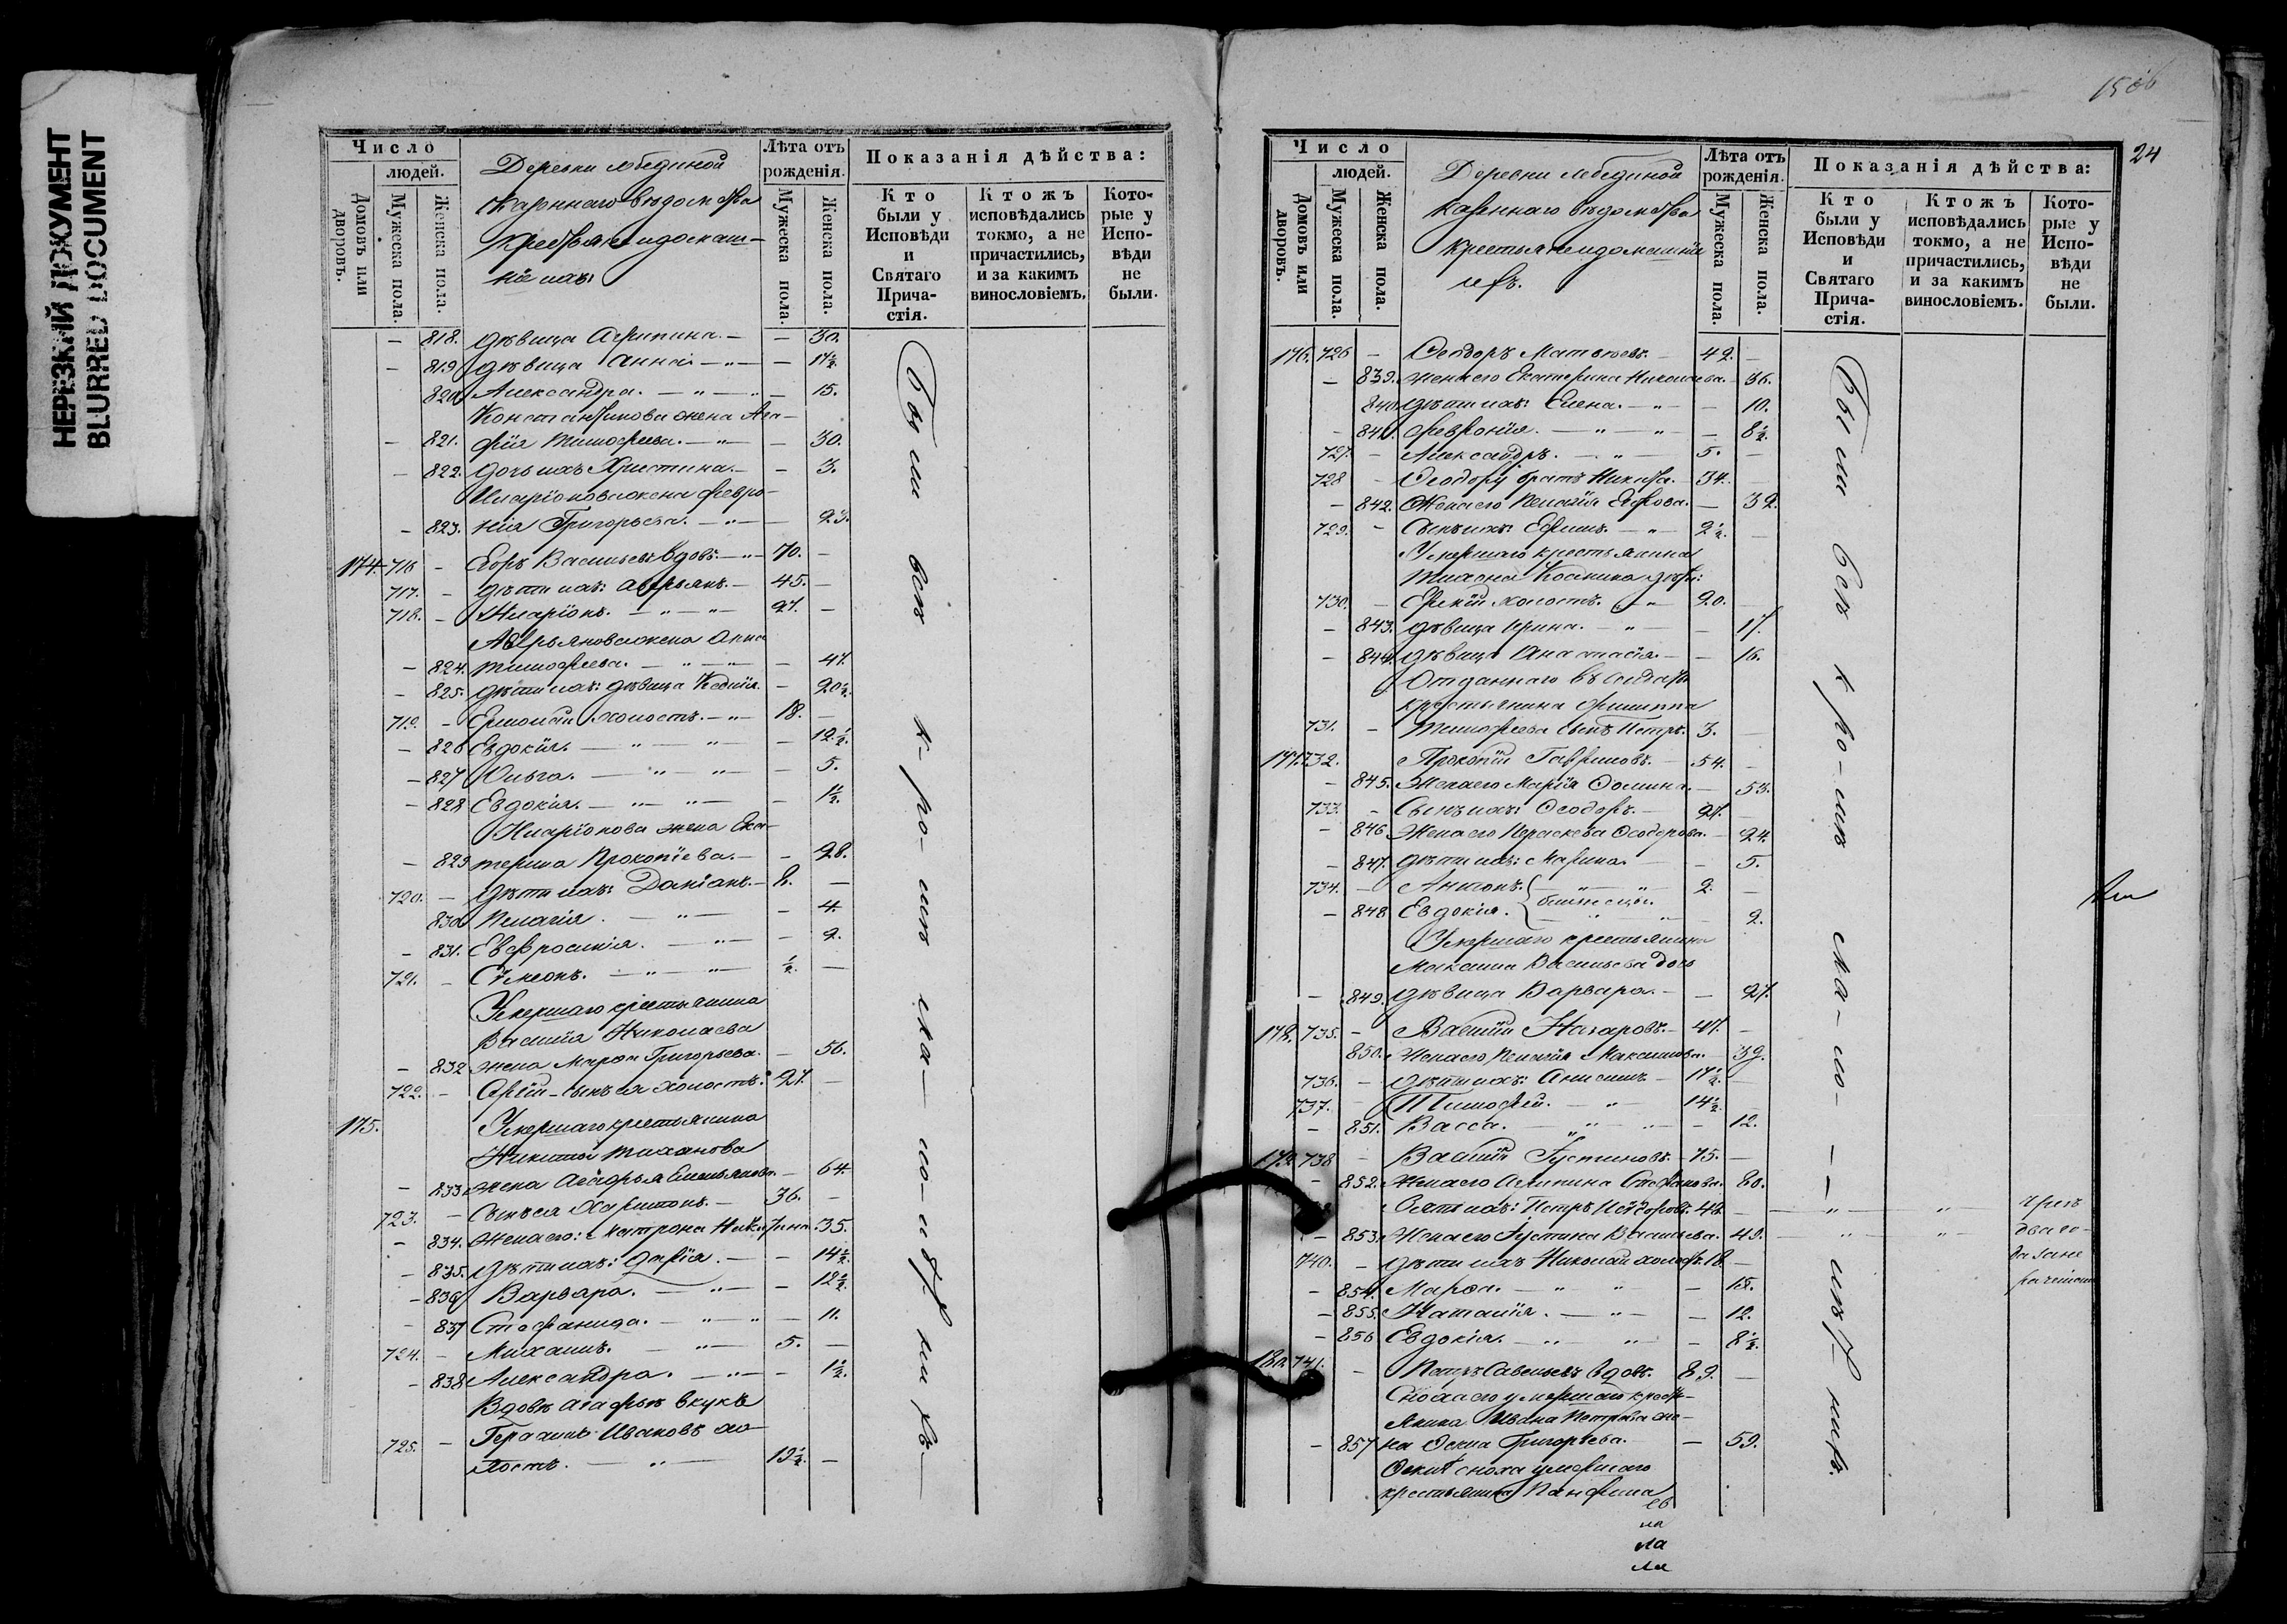 НЕРЕЗКИЙ ДОКУМЕНТ
BLURRED DOCUMENT
Число
людей.
Домовъ или дворовъ.
Мужеска пола.
Женска пола.
Деревни Лебединой
Казеннаго вѣдомства
крестьяне и домаш-
нiе ихъ:
Лѣта отъ рожденія.
Мужеска пола.
Женска пола.
Показанія дѣйства:
Кто были у Исповѣди и Святаго Прича-стія.
Ктожъ исповѣдались токмо, а не причастились, и за какимъ винословіемъ.
Кото-рые у Испо-вѣди не были.
— 818. дѣвица Агрипина. — — 30.
— 819 дѣвица Анна — „ — — 17½
820 Александра. — „ — „ — 15.
Константинова жена Ага-
— 821. фія Тимофеева. — „ — — 30.
— 822. дочь ихъ Христина. — — 3.
Иларіонова жена Февро-
— 823. нія Григорьева. — „ — — 23.
174. 716 — Егоръ Васильевъ вдовъ. — „ — 70. —
717. — дѣти ихъ: Аверьянъ. — 45. —
718. — Иларіонъ. — „ — „ — 27. —
Аверьянова жена Анна
— 824. Тимофеева. — „ — „ — — 47.
— 825. дѣти ихъ: дѣвица — 20½.
719. — Ермолай холостъ. — „ — 18. —
— 826 Евдокія. — „ — „ — — 12½.
— 827 Ольга. — „ — „ — — 5.
— 828 Евдокія. — „ — „ — — 1½.
Иларіонова жена Ека-
— 829 терина Прокопіева. — — 28.
720. — дѣти ихъ: Даніанъ. — —
830 Пелагія. — „ — — 4.
— 831. Евфросинія. — „ — — 2.
721. — Сѵмеонъ. — „ — „ — ½. —
Умершаго крестьянина
Василія Николаева
— 832 жена Марѳа Григорьева. — 56.
722. — сынъ ея холостъ. 27. —
175. Умершаго крестьянина
Никиты
— 833 жена Агафья Емельянова. — 64.
723. — Сынъ ея Харитонъ. — 36. —
— 834. Жена его: Матрона Никитина. 35.
— 835. дѣти ихъ: Дарія. — — 14½.
— 836 Варвара. — „ — — 12½.
— 837 Стефанида. — „ — „ — 11.
724. — Михаилъ. — „ — 5. —
— 838 Александра. — „ — — 1½.
Вдовы Агафьи внукъ
725. — Герасимъ Ивановъ хо-
лостъ. — „ — 19½. —
Были всѣ
1506
24
Число
людей.
Домовъ или дворовъ.
Мужеска пола.
Женска пола.
Деревни Лебединой
Казеннаго вѣдомства
крестьяне и домашніе
ихъ.
Лѣта отъ рожденія.
Мужеска пола.
Женска пола.
Показанія дѣйства:
Кто были у Исповѣди и Святаго Прича-стія.
Ктожъ исповѣдались токмо, а не причастились, и за какимъ винословіемъ.
Кото-рые у Испо-вѣди не были.
176. 726 — Ѳеодоръ Матвѣевъ. — 42. —
— 839. жена его Екатерина Николаева. — 36.
840 дѣти ихъ: Елена. — „ — — 10.
— 841. Февронія. — „ — „ — 8½.
727. — Александръ. — „ — 5. —
728 — Ѳеодору братъ Никита. — 34. —
— 842. Жена его Пелагія Егорова. — 32.
729. — Сынъ ихъ: Ефимъ. — „ — 2½. —
Умершаго крестьянина
Тихона Космина дѣти:
730. — холостъ. — „ — 20. —
— 843. дѣвица Ирина. — „ — — 17.
— 844. дѣвица Анастасія. — — 16.
Отданнаго въ солдаты
крестьянина Филиппа
731. — Тимофеева сынъ Петръ. 3. —
177. 732. Прокопій Гавриловъ. — 54. —
— 845. Жена его Марія Ѳомина. — 53.
733. — Сынъ ихъ: Ѳеодоръ. — 27. —
— 846 Жена его Параскева Ѳеодорова. — 24.
— 847. дѣти ихъ: Марина. — — 5.
734. — Антонъ. — „ — „ 2. —
близнецы.
— 848 Евдокія. — „ — „ — 2.
Умершаго крестьянина
Максима Васильева дочь
— 849. дѣвица Варвара. — — 27.
178. 735. — Василій Назаровъ. — 47. —
850. Жена его Пелагія Максимова. — 39.
736. — дѣти ихъ: Анисимъ — 17½. —
737. — Тимофей. — „ — 14½. —
— 851. Васса. — „ — „ — 12.
179. 738 — Василій Густиновъ. — 75. —
— 852. Жена его Агрипина Стефанова. 80.
Зять ихъ: Петръ 42. — „ „
— 853. Жена его Іустина Васильева. 42. — „ — „
740. — дѣти ихъ Николай холостъ. 18 —
— 854. Марѳа. — „ „ — 15.
— 855. Наталія. — „ — — 12.
— 856 Евдокія. — „ „ — 8½.
180. 741. — Петръ Савельевъ вдовъ. 89. —
Сноха его умершаго кресть-
янина Ивана Петрова же-
— 857 на Ѳекла Григорьева. — 59.
сноха умершаго
крестьянина Панфила
Были всѣ кромѣ
чрезъ
два го-
да